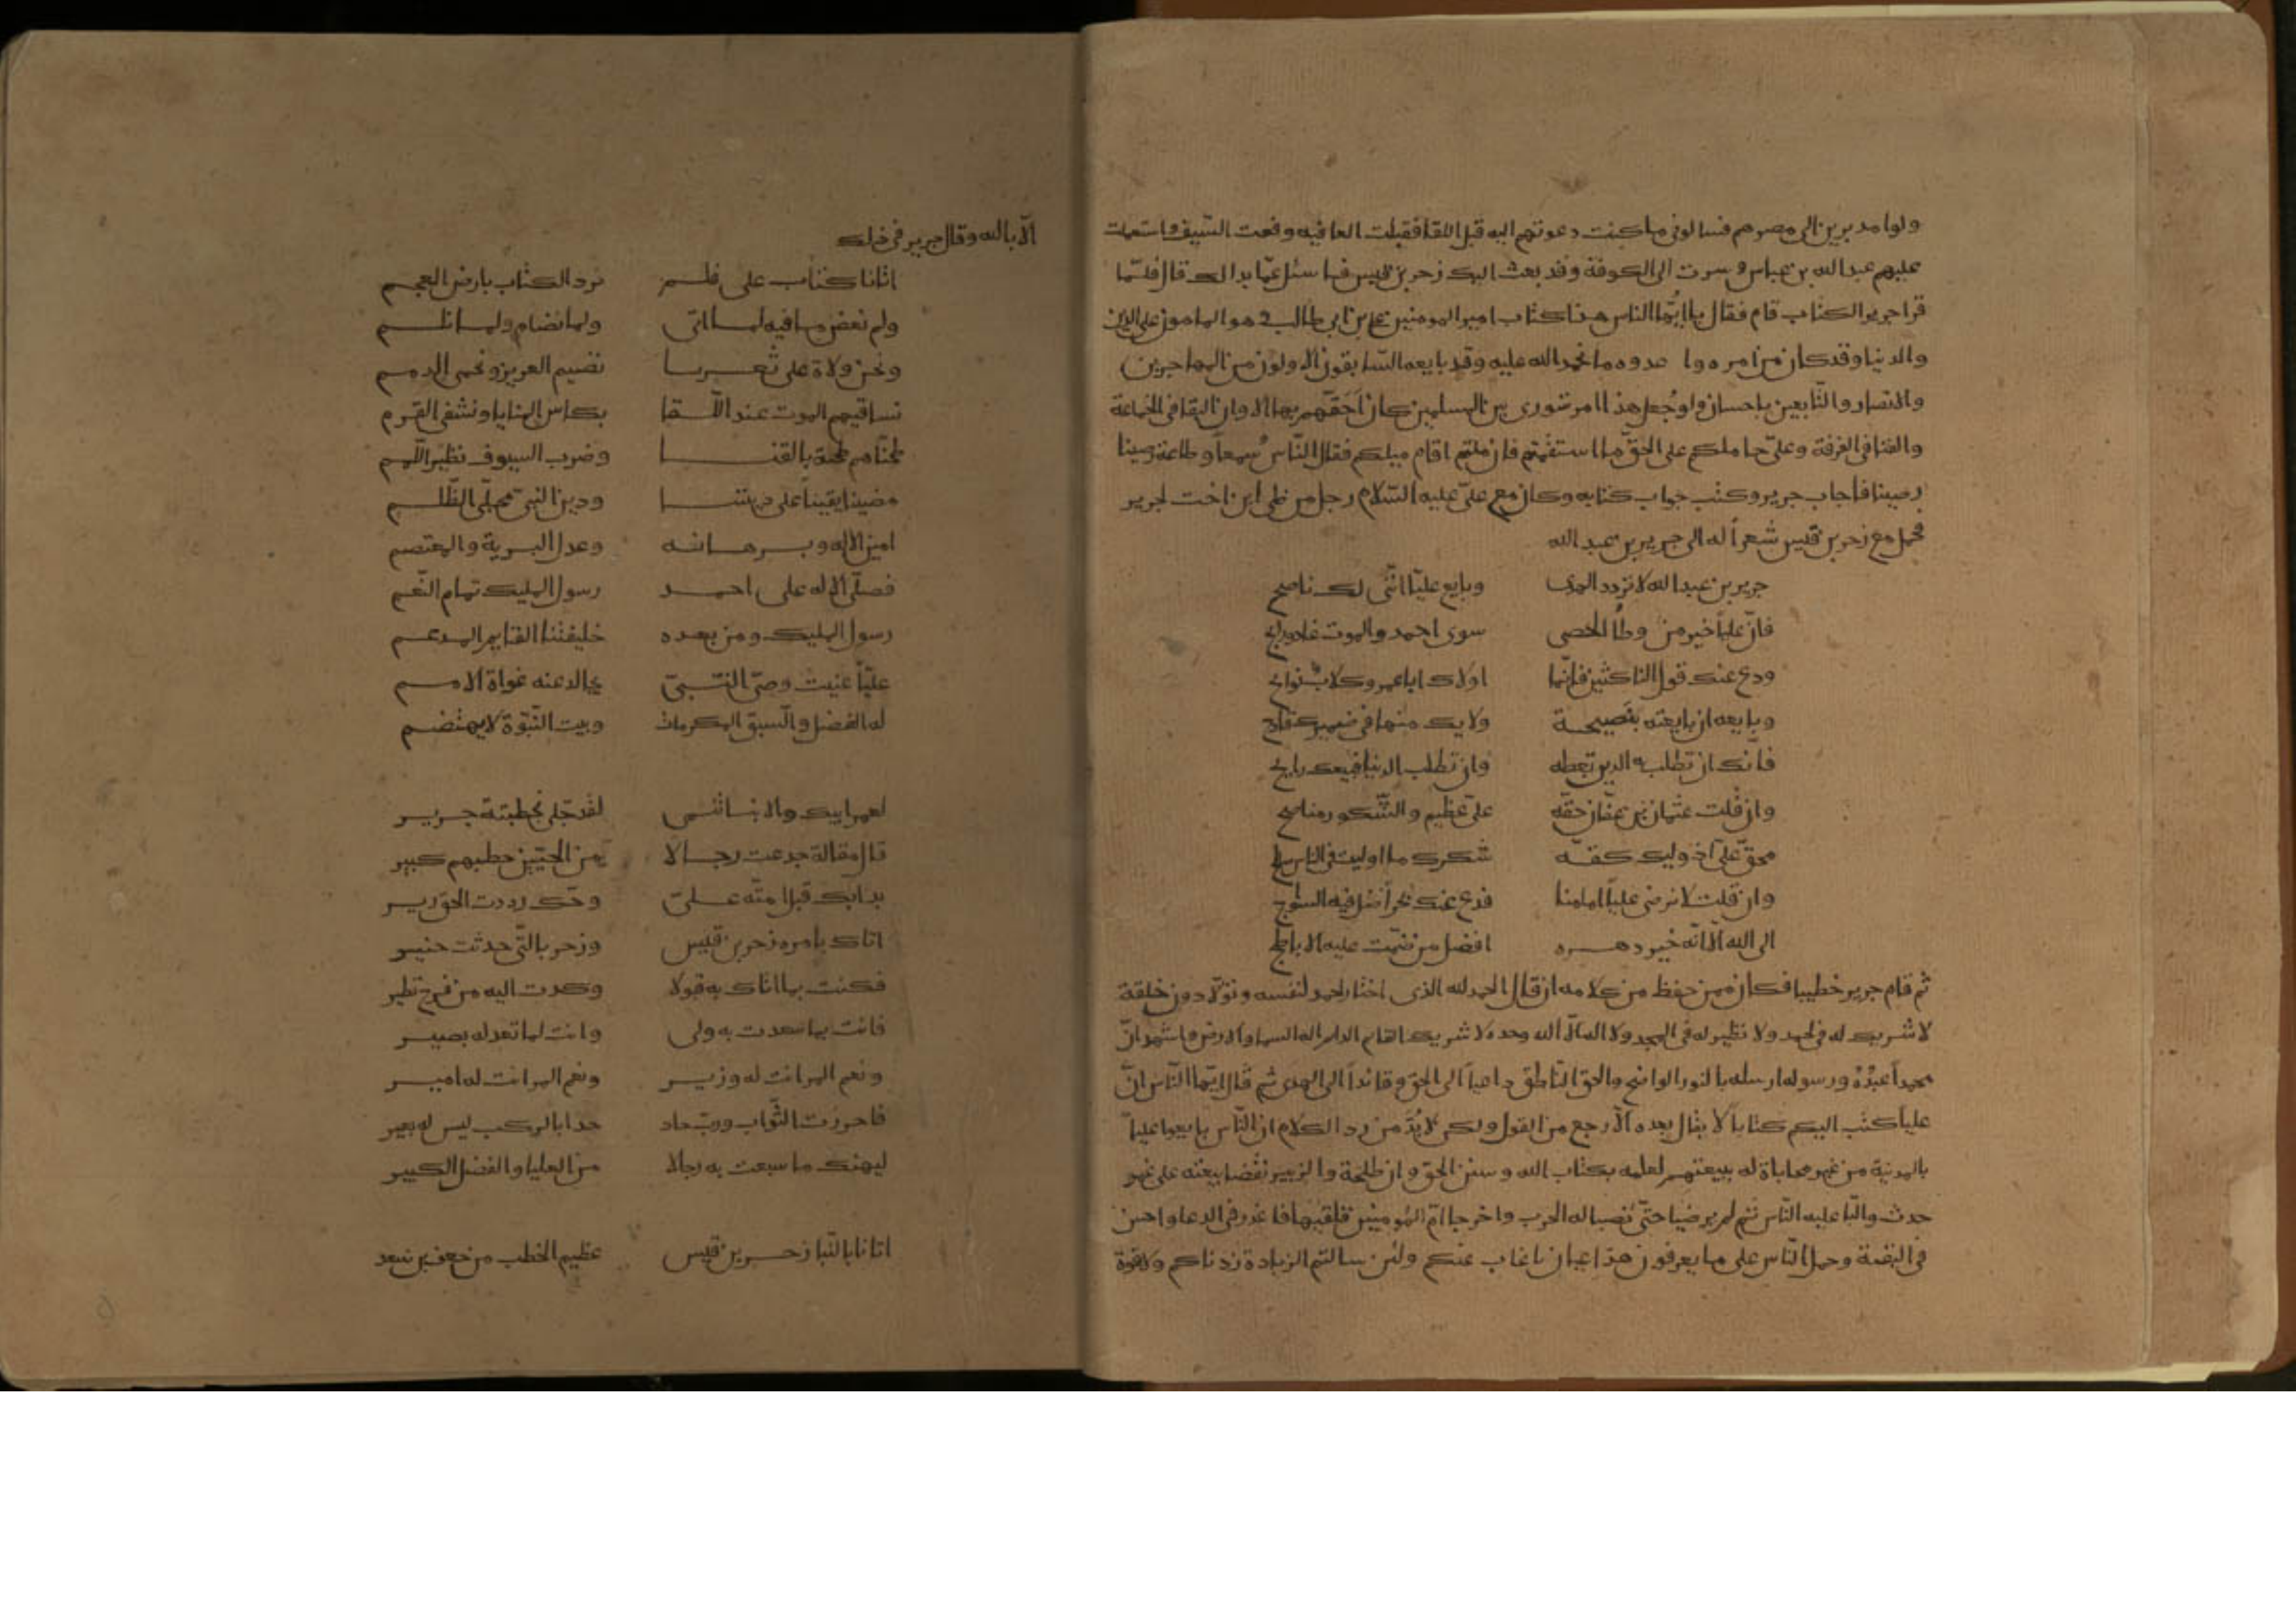 ولوا مدبرين الى مصرهم فسالونى ما كنت دعوتهم اليه قبل اللقا فقبلت العافية ورفعت السيف واستعملت
عليهم عبدالله بن عباس وسرت الى الكوفة وقد بعثت اليك زحر بن قيس فاسئل عما بدالك قال فلمّا
قرا جرير الكتاب قام فقال يا ايّها الناس هذا كتاب امير المومنين على بن ابى طالب وهو المامون على الدين
والدنيا وقد كان من امره وامر عدوه ما نحمد الله عليه وقد بايعه السابقون الاولون من المهاجرين
والانصار والتّابعين باحسان ولو جُعل هذا الامر شورى بين المسلمين كان احقّهم بها الا وان البقا فى الجماعة
والفنا فى الفرقة وعلىّ حاملكم على الحقّ ما استقمتم فان ملتم اقام ميلكم فقال النّاس سمعاً وطاعة رضينا
رضينا فاجاب جرير وكتب جواب كتابه وكان مع علىّ عليه السّلام رجل من طى ابن اخت لجرير
فحمل مع زحر بن قيس شعراً له الى جرير بن عبد الله
جرير بن عبدالله لا تردد الهدى وبايع عليّا انّنى لك ناصح
فانّ عليّاً خير من وطأ الحصى سوى احمد والموت غاد ورايح
ودع عنك قول الناكثين فانّما اولاك ابا عمرو كلاب نوابح
وبايعه ان بايعته بنصيحة ولا يك منها فى ضميرك قادح
فانّك ان تطلب به الدين تعطه وان تطلب الدنيا فبيعك رابح
وان قلت عثمان بن عفّان حقّه علىّ عظيم والشّكور مناصح
فحقّ علىّ اذ وليك كحقّه وشكرك ما اوليت فى الناس صالح
وان قلت لا نرضى عليّاً امامنا فدع عنك بحراً ضلّ فيه السّوابح
ابى الله الّا انّه خير دهره وافضل من ضمّت عليه الاباطح
ثم قام جرير خطيبا فكان ممن حفظ من كلامه ان قال الحمد لله الذى اختار الحمد لنفسه وتولّاه دون خلقه
لا شريك له فى الحمد ولا نظير له فى المجد ولا اله الّا الله وحده لا شريك له القايم الدايم اله السما والارض واشهد انّ
محمداً عبدُهُ ورسوله ارسله بالنور الواضح والحق النّاطق داعياً الى الحق وقائداً الى الهدى ثم قال ايّها النّاس انّ
عليّاً كتب اليكم كتاباً لا يقال بعده الّا رجع من القول ولكن لا بُدّ من رد الكلام ان النّاس بايعوا عليّاً
بالمدينة من غير محاباة له ببيعتهم لعلمه بكتاب الله وسنن الحق وان طلحة والزبير نقضا بيعته على غير
حدث والّبا عليه النّاس ثم لم يرضيا حتّى نصبا له الحرب واخرجا امّ المومنين فلقيهما فاعذر فى الدعا واحسن
فى البقية وحمل النّاس على ما يعرفون هذا عيان ما غاب عنكم ولئن سالتم الزيادة زدناكم ولا قوّة
الّا بالله وقال جرير فى ذلك
اتانا كتاب على فلم نرد الكتاب بارض العجم
ولم نعص ما فيه لما اتى ولما نضام ولما نلم
ونحن ولاة على ثغرنا نضيم العزيز ونحمى الذمم
نساقيهم الموت عند اللّقا بكاس المنايا ونشفى القرم
طحنّاهم طحنة بالقنا وضرب السيوف تطير اللّمم
مضينا يقيناً على ديننا ودين النبى مجلّى الظّلم
امين الاله وبرهانه وعدل البرية والمعتصم
فصلّى الاله على احمد رسول المليك تمام النّعم
رسول المليك ومن بعده خليفتنا القايم المدعم
عليّاً عنيت وصىّ النّبىّ نجالد عنه غواة الامم
له الفضل والسبق المكرمات وبيت النّبوّة لا يهتضم
لعمر ابيك والانبا تنمى لقد جلّى بخطبته جرير
قال مقالة جدعت رجالا من الحيّين خطبهم كبير
بدا بك قبل امّته علىّ ومخّك ان رددت الحق رير
اتاك بامره زحر بن قيس وزحر بالّتى حدثت خبير
فكنت بما اتاك به قولا وكدت اليه من فرح تطير
فانت بما سعدت به ولى وانت لما تعد له بصير
ونعم المر انت له وزير ونعم المر انت له امير
فاحرزت الثّواب وربّ حاد حدا بالركب ليس له بعير
ليهنك ما سبقت به رجالا من العليا والفضل الكبير
اتانا بالنّبا زحر بن قيس عظيم الخطب من جعف بن سعد